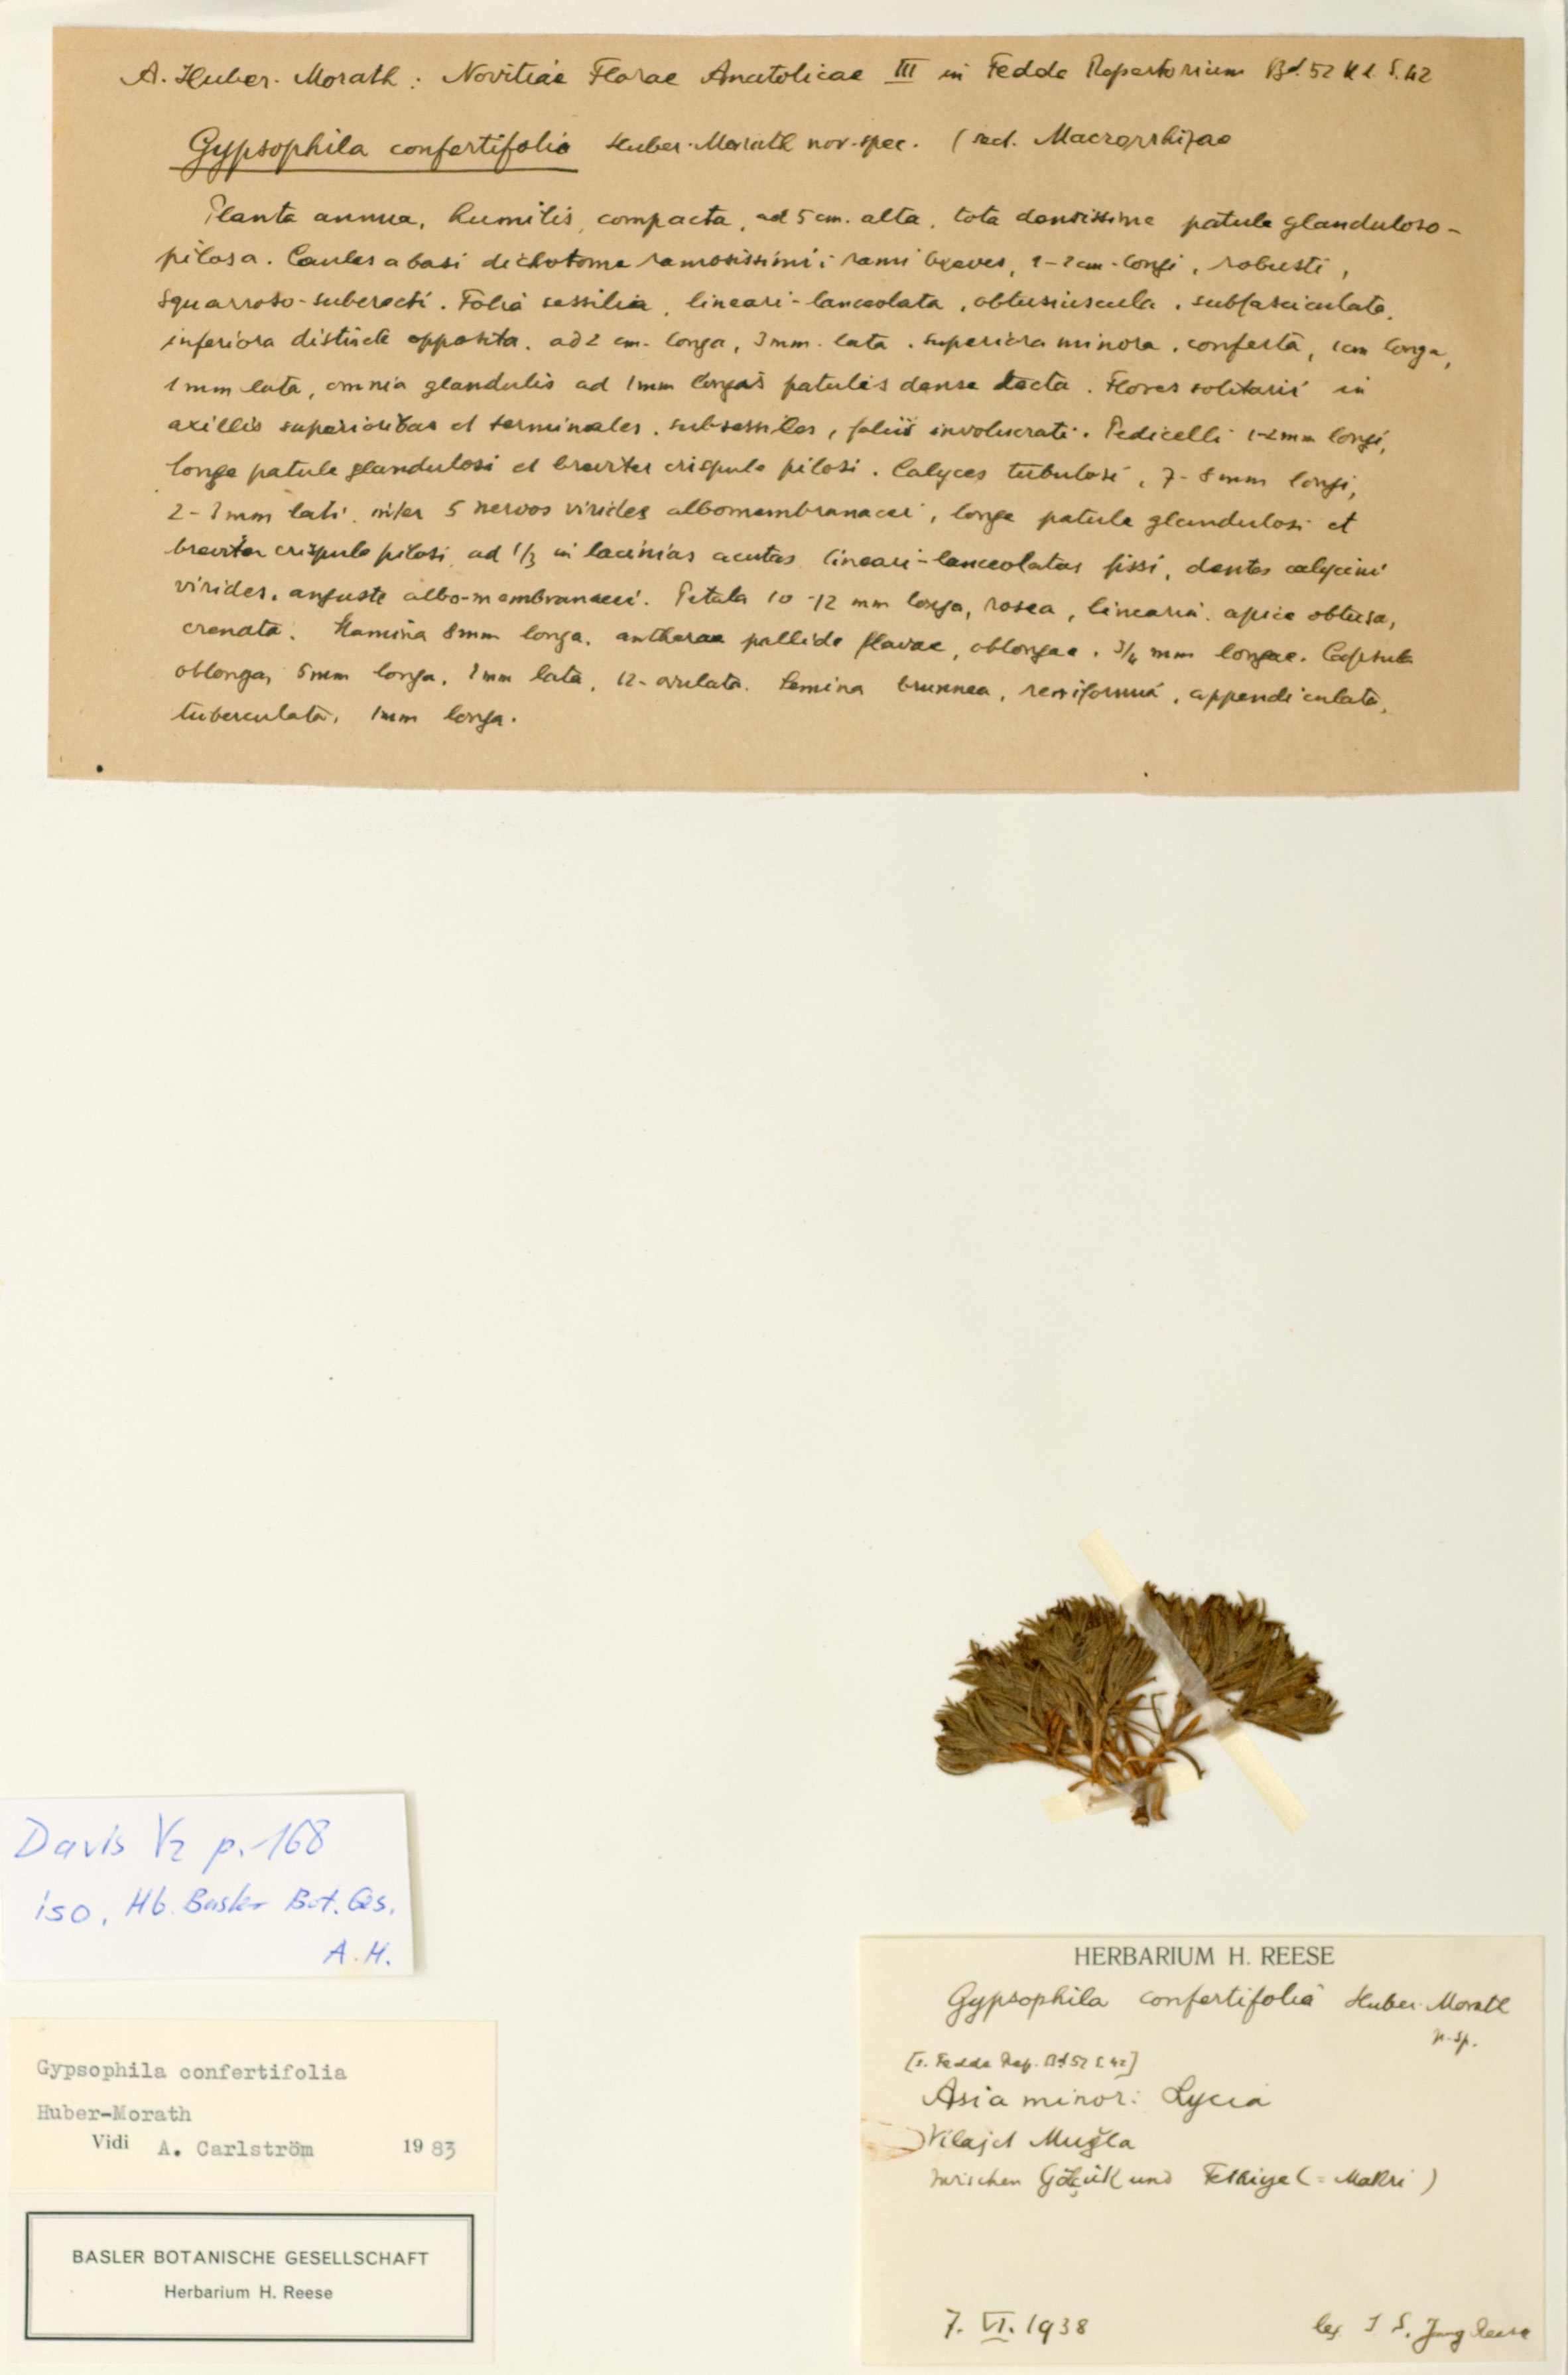 A. Huber-Morath: Novitiae Florae Anatolicae III in Fedde Repertorium Bd. 52 S. 42
Gypsophila confertifolia Huber-Morath nov. spec. (sect. Macrorrhizae
Planta annua, humilis, compacta, ad 5 cm. alta, tota densissime patule glanduloso-
pilosa. Caules a basi dichotome ramosissimi; rami breves, 1-2 cm. longi, robusti,
squarroso-suberecti. Folia sessilia, lineari-lanceolata, obtusiuscula, subfasciculata,
inferiora distincte opposita, ad 2 cm. longa, 3 mm. lata, superiora minora, conferta, 1 cm longa,
1 mm lata, omnia glandulis ad 1 mm longis patulis dense tecta. Flores solitarii in
axillis superioribus et terminales, subsessiles, foliis involucrati. Pedicelli 1-2 mm longi,
longe patule glandulosi et breviter crispule pilosi. Calyces tubulosi, 7-8 mm longi,
2-3 mm lati, inter 5 nervos virides albomembranacei, longe patule glandulosi et
breviter crispule pilosi, ad 1/3 in lacinias acutas lineari-lanceolatas fissi, dentes calycini
virides, anguste albo-membranacei. Petala 10-12 mm longa, rosea, linearia, apice obtusa,
crenata. Stamina 8 mm longa, antherae pallide flavae, oblongae, 3/4 mm longae. Capsula
oblonga, 5 mm longa, 2 mm lata, 12-ovulata. Semina brunnea, reniformia, appendiculata,
tuberculata, 1 mm longa.
Davis V2 p. 168
iso, Hb. Basler Bot. Ges.
A. H.
Gypsophila confertifolia
Huber-Morath
Vidi A. Carlström 1983
BASLER BOTANISCHE GESELLSCHAFT
Herbarium H. Reese
HERBARIUM H. REESE
Gypsophila confertifolia Huber-Morath
n. sp.
[s. Fedde Rep. Bd 52 S. 42]
Asia minor: Lycia
Vilajet Muğla
zwischen Gökçük und Fethiye (= Makri)
7. VI. 1938
leg. Jung Reese